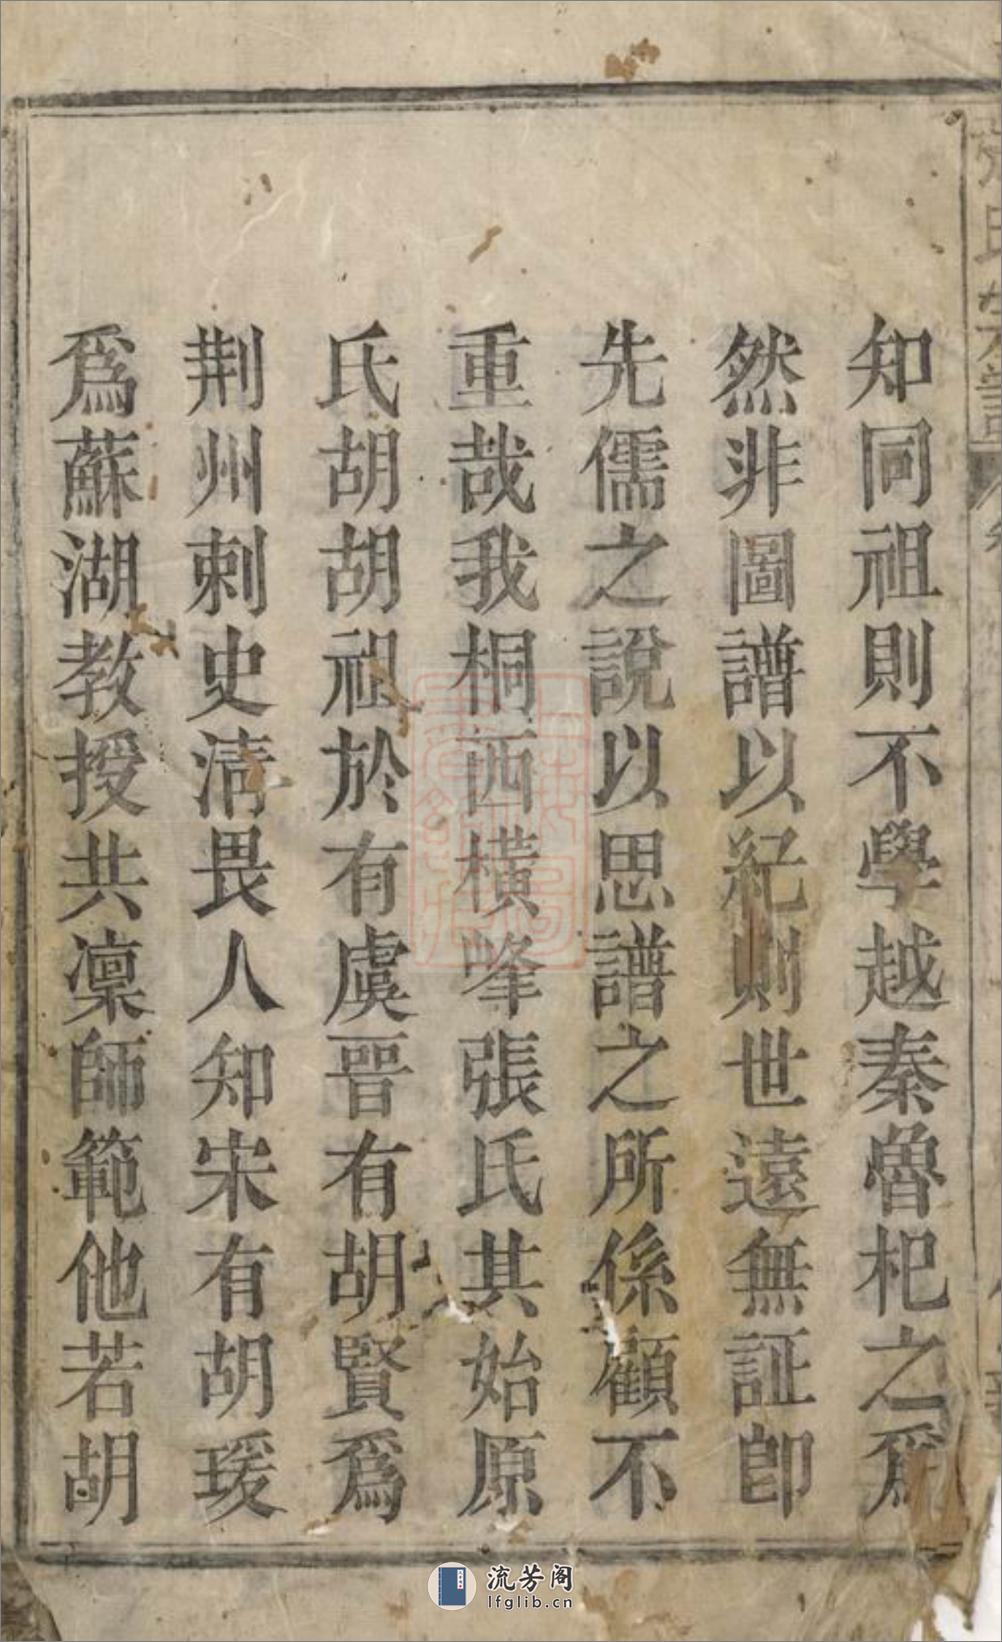 知同祖則不學越秦魯杞之爲
然非圖譜以紀則世遠無証即
先儒之說以思譜之所係顧不
重哉我桐西橫峰張氏其始原
氏胡胡祖於有虞晋有胡賢爲
荆州刺史清畏人知宋有胡瑗
爲蘇湖教授共凜師範他若胡
氏宗譜
流芳阁
lfglib.cn